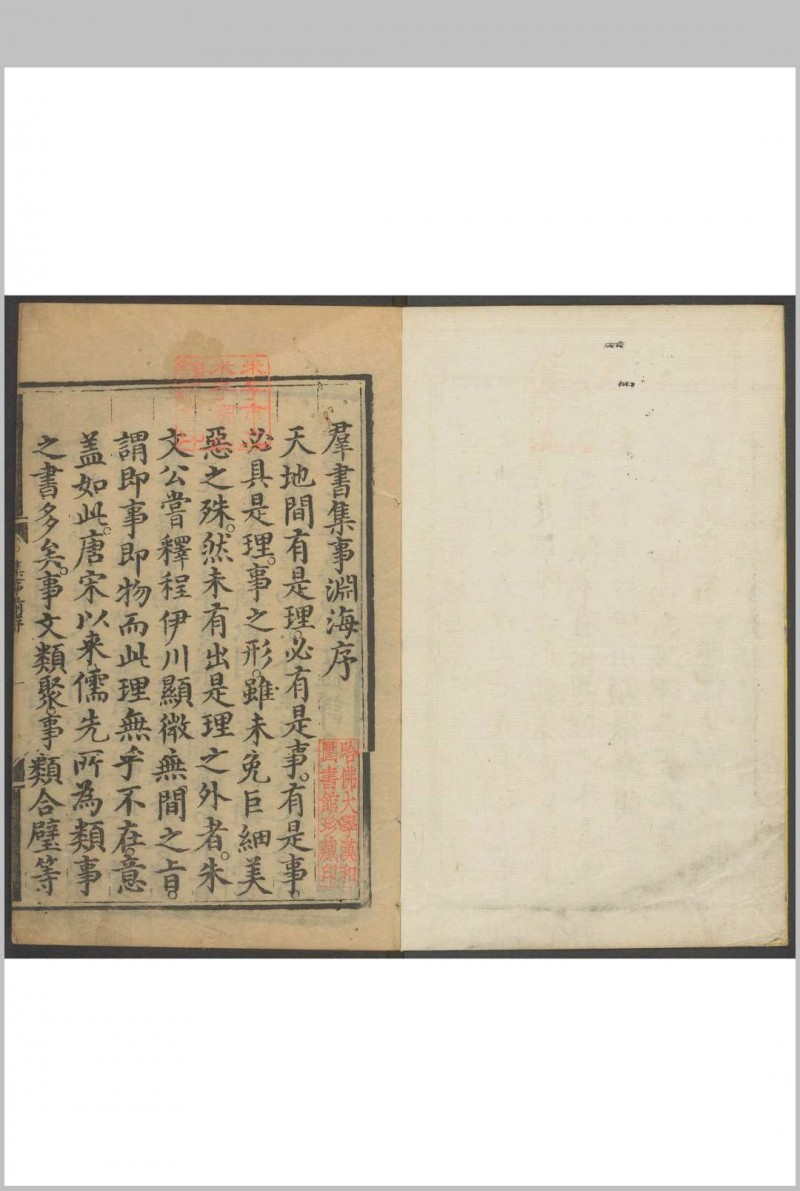 羣書集事淵海序
天地間有是理。必有是事。有是事。
必具是理。事之形。雖未免巨細美
惡之殊。然未有出是理之外者。朱
文公嘗釋程伊川顯微無間之旨。
謂即事即物而此理無乎不在。意
盖如此。唐宋以来。儒先所為類事
之書多矣。事文類聚。事類合璧等
集事淵海序
哈佛大學漢和
圖書館珍藏印